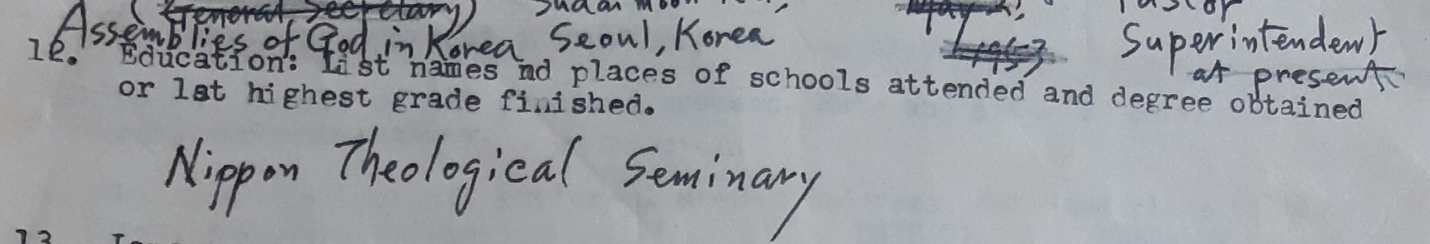 (General Secretary)
Assemblies of God in Korea Seoul, Korea 1957 Superintendent
at present
12. Education: List names nd places of schools attended and degree obtained
or last highest grade finished.
Nippon Theological Seminary
13